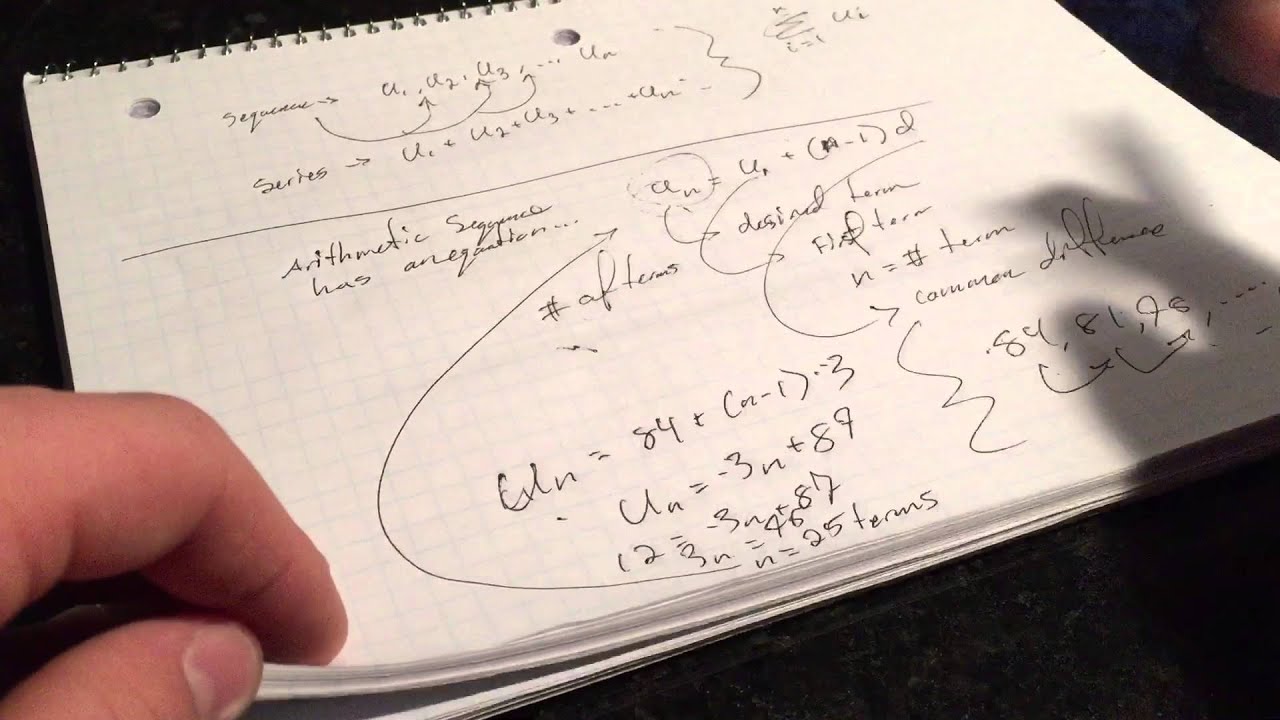 Sequence → u₁, u₂, u₃, ... uₙ
Series → u₁ + u₂ + u₃ + .... + uₙ
n
Σ uᵢ
i=1
Arithmetic Sequence
has an equation...
uₙ = u₁ + (n-1)d
desired term
First term
n = # term
common difference
# of terms
84, 81, 78, .....
uₙ = 84 + (n-1)·-3
uₙ = -3n + 87
12 = -3n + 87
n = 25 terms